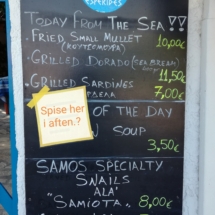 TODAY FROM THE SEA!!
• FRIED, SMALL MULLET
10,00€
• GRILLED DORADO (SEA BREAM)
11,50€
• GRILLED SARDINES
7,00€
Spise her
i aften.?
OF THE DAY
SOUP
3,50€
SAMOS SPECIALTY
SNAILS
ALA'
"SAMIOTA" 8,00€